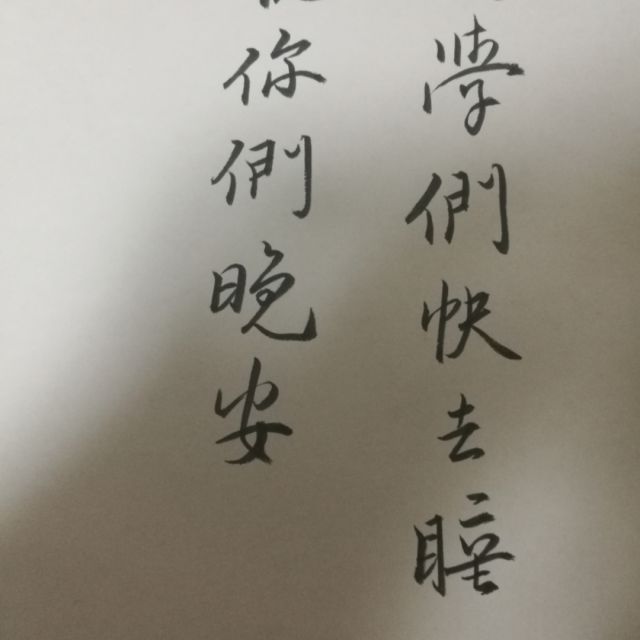 學們快去睡
你們晚安